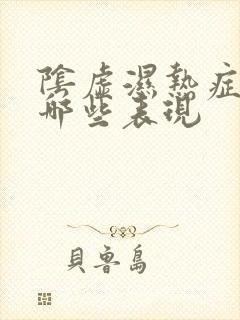 陰虛濕熱症
哪些表現
貝魯島